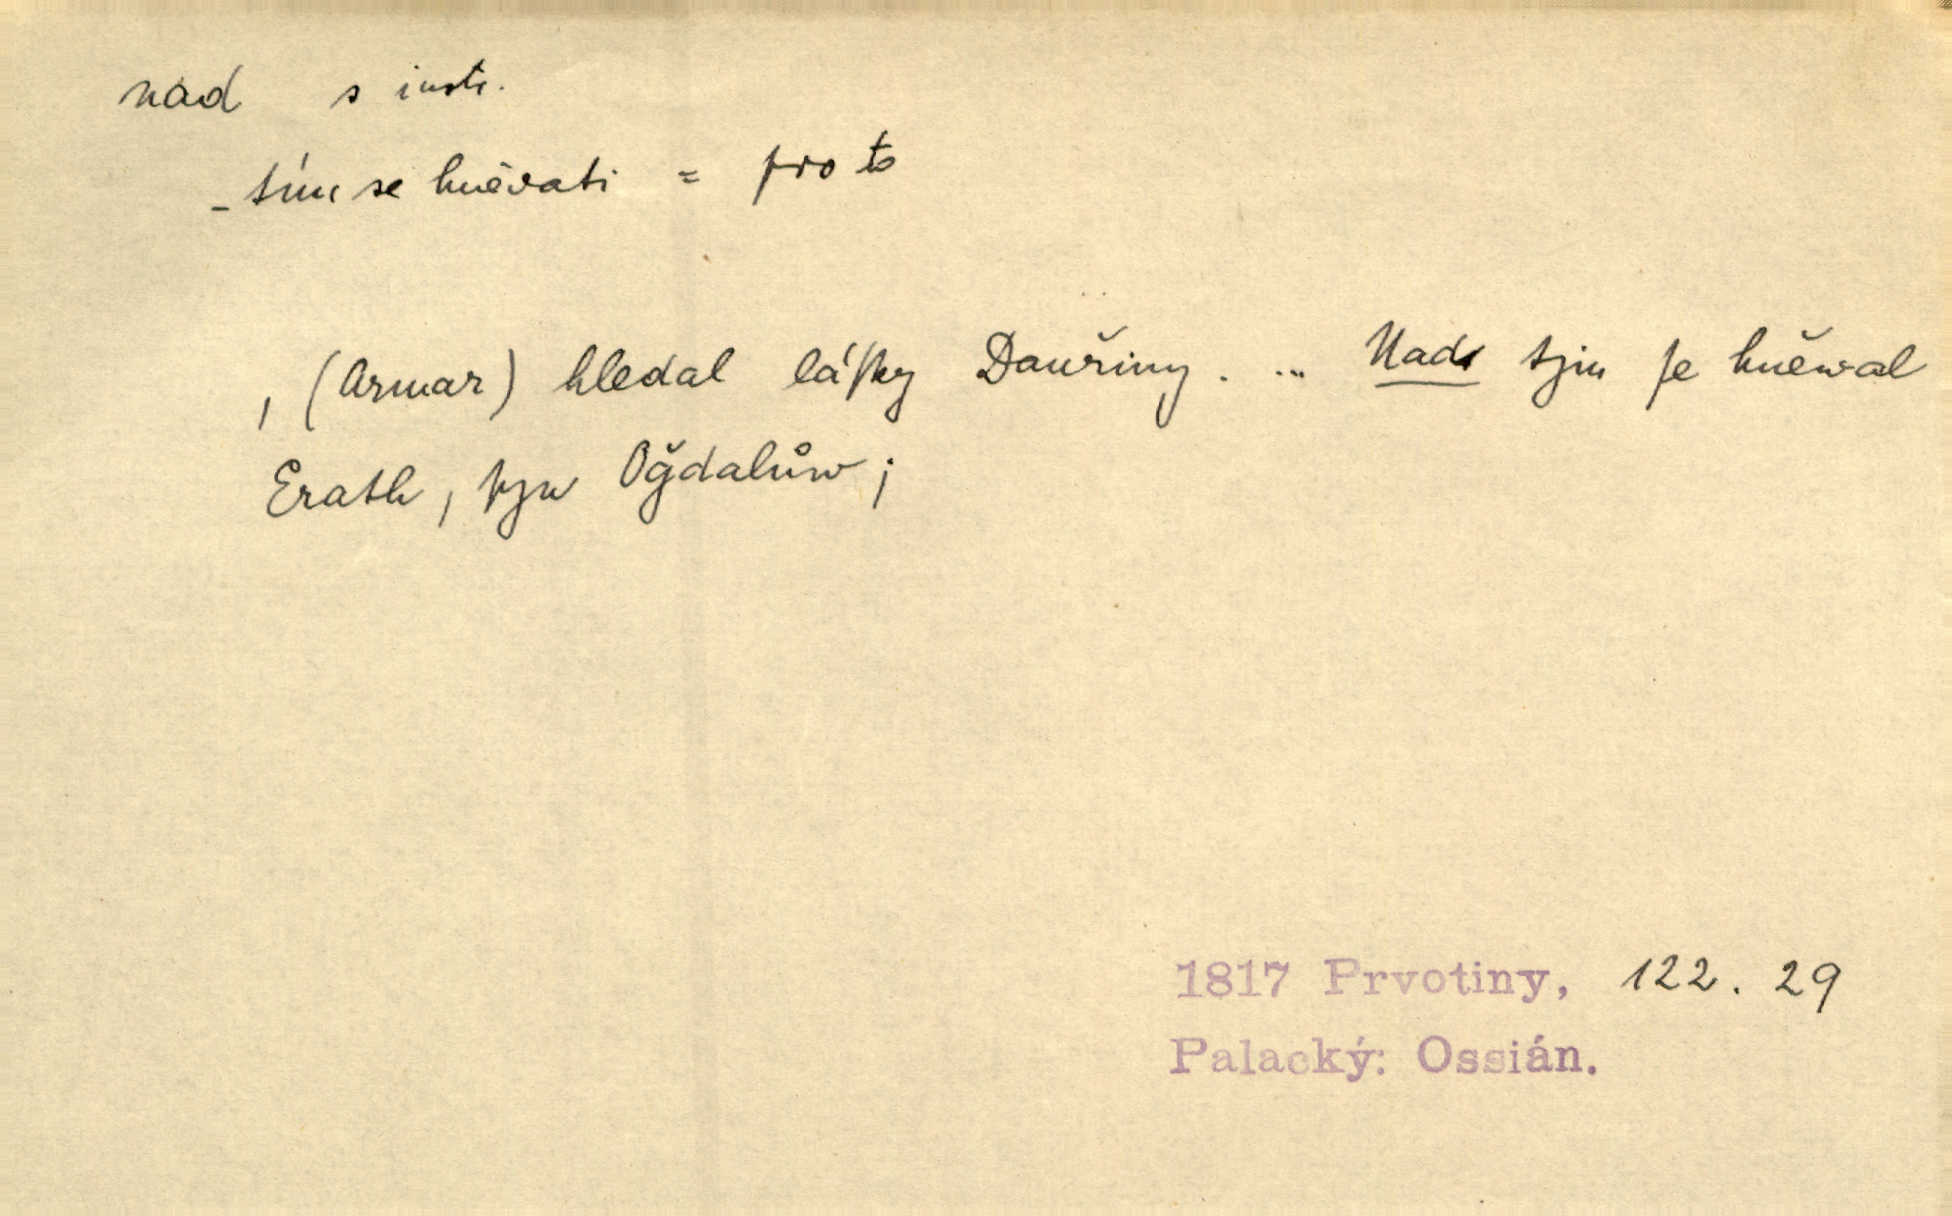 nad s instr.
- tím se hněvati = pro to
, (Armar) hledal láſky Dauřiny. ... Nad tjm ſe hněwal
Erath, syn Oǧdalůw;
1817 Prvotiny, 122. 29
Palacký: Ossián.